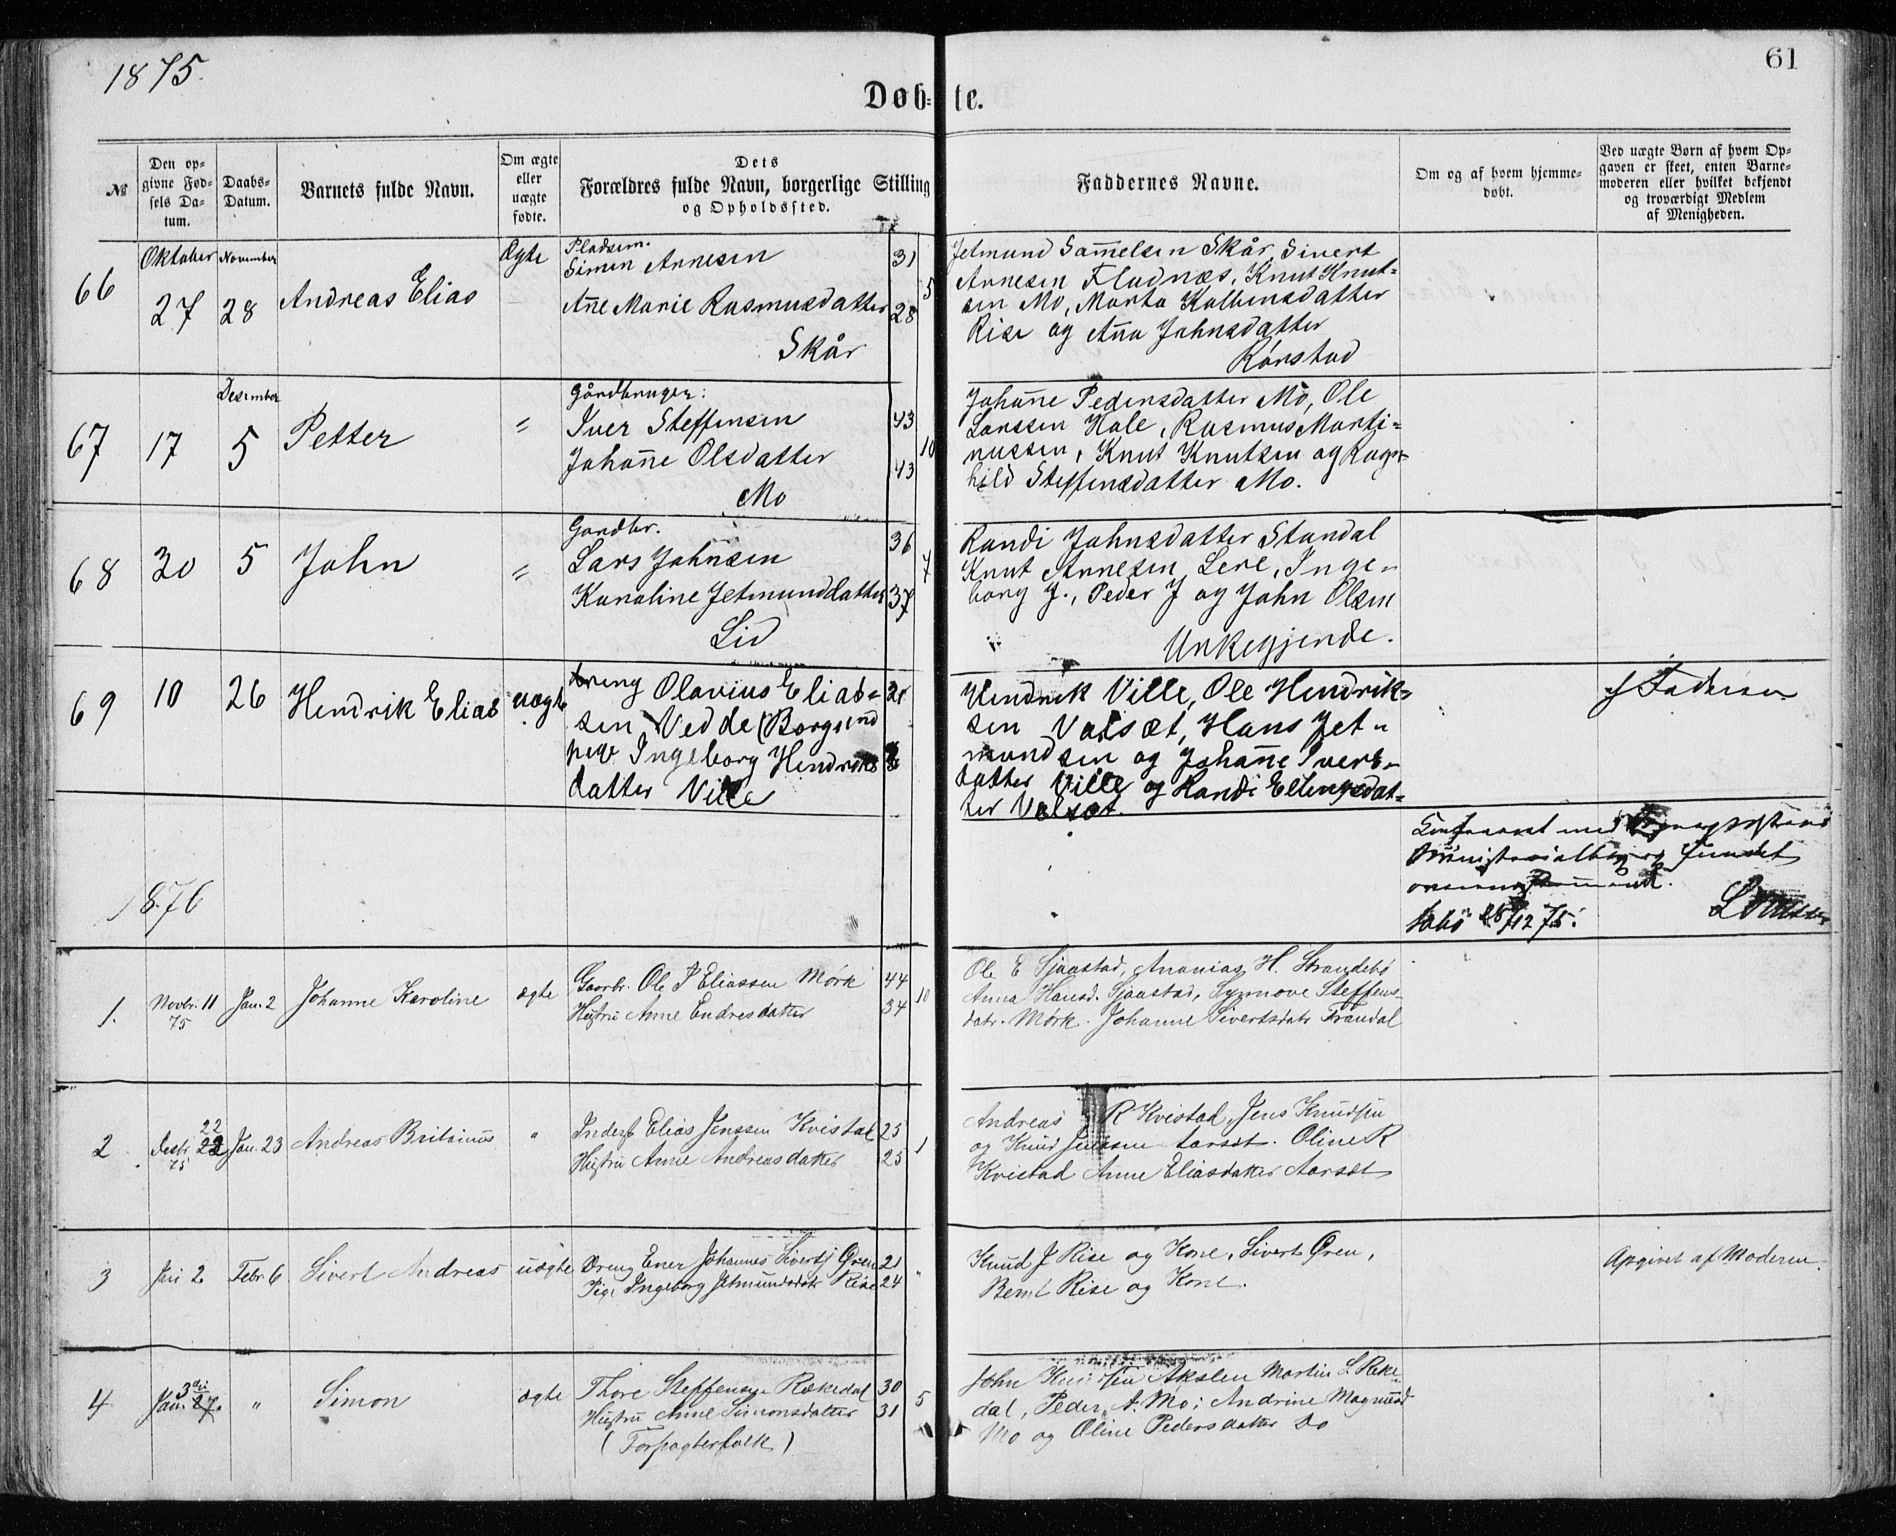 1875.
61
Døb-te.
№
Den op-
givne Fød-
sels Da-
tum.
Daabs-
Datum.
Barnets fulde Navn.
Om ægte
eller
uægte
fødte.
Dets
Forældres fulde Navn, borgerlige Stilling
og Opholdssted.
Faddernes Navne.
Om og af hvem hjemme-
døbt.
Ved uægte Børn af hvem Op-
gaven er skeet, enten Barne-
moderen eller hvilket bekjendt
og troværdigt Medlem
af Menigheden.
66
Oktober
27
November
28
Andreas Elias
Ægte
Pladsm.
Simen Arnesen 31
Ane Marie Rasmusdatter 28
Skår
5
Jetmund Samelsen Skår, Sivert
Arnesen Fladnæs, Knut Knut-
sen Mo, Marta Kolbensdatter
Rise og Ana Johnsdatter
Kørstad
67
17
Desember
5
Petter
"
Gårdbruger:
Iver Steffensen 43
Johane Olsdatter 43
Mo
10
Johane Pedersdatter Mo, Ole
Larssen Hole, Rasmus Marti-
nussen, Knut Knutsen og Ragn-
hild Steffensdatter Mo.
68
30
5
John
"
Gardbr.
Lars Johnsen 36
Karoline Jetmunddatter 37
Lid
7
Randi Johnsdatter Standal
Knut Arnesen Lere, Inge-
borg J., Peder J og John Olsen
Unkegjende.
69
10
26
Hendrik Elias
uægte
dreng Olavius Elias-
sen Vedde (Borgund
pige Ingeborg Hendriks
datter Ville
Hendrik Ville, Ole Hendrik-
sen Valsæt, Hans Jet-
mundsen og Johane Ivers-
datter Ville og Randi Ellingsdat-
ter Valsæt.
Faderen
1876
Confereret med
Ministerialbog og fundet
75.
1.
Novbr. 11
75
Jan. 2
Johanne Karoline
ægte
Gaarbr. Ole P Eliassen Mørk 44
Hustru Anne Endresdatter 34
10
Ole E Sjaastad, Ananias H. Strandebø
Anna Hansd. Sjaastad, Synnove Steffens-
datr. Mørk. Johanne Sivertsdatr Frandal
2
22
Desbr. 22
75
Jan. 23
Andreas Britsinus
"
Inderst Elias Jenssen Kvistad 25
Hustru Anne Andreasdatter 25
1
Andreas R Kvistad, Jens Knudsen
og Knud Jenssen Aarsæt. Oline R
Kvistad Anne Eliasdatter Aarsæt
3
Jan 2
Febr. 6
Sivert Andreas
uægte
Dreng Ener Johannes Sivertsj Øren 21
Pige Ingeborg Jetmundsdatr Rise 24
"
Knud J Rise og Kone, Sivert Øren,
Bernt Rise og Kone.
Opgivet af Moderen.
4
3die
Jan. 27.
"
Simon
ægte
Thore Steffensen Rækedal 30
Hustru Anne Simonsdatter 31
(Forpagterfolk)
5
John Knutsen Akslen Martin S. Reke-
dal, Peder A. Mo; Andrine Magnusd
Mo og Oline Pedersdatter Do